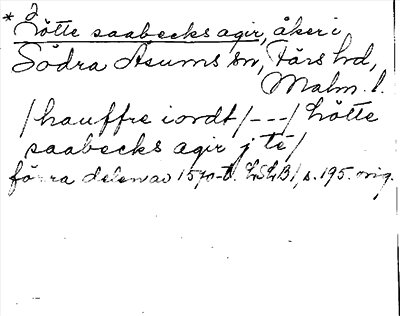 * Lötte saabecks agir, åker i
Södra Åsums sn, Färs hd,
Malm. l.
/hauffre iordt/---/ Lötte
saabecks agir j të/
förra delen av 1570-t. LSLB/, s. 195. orig.